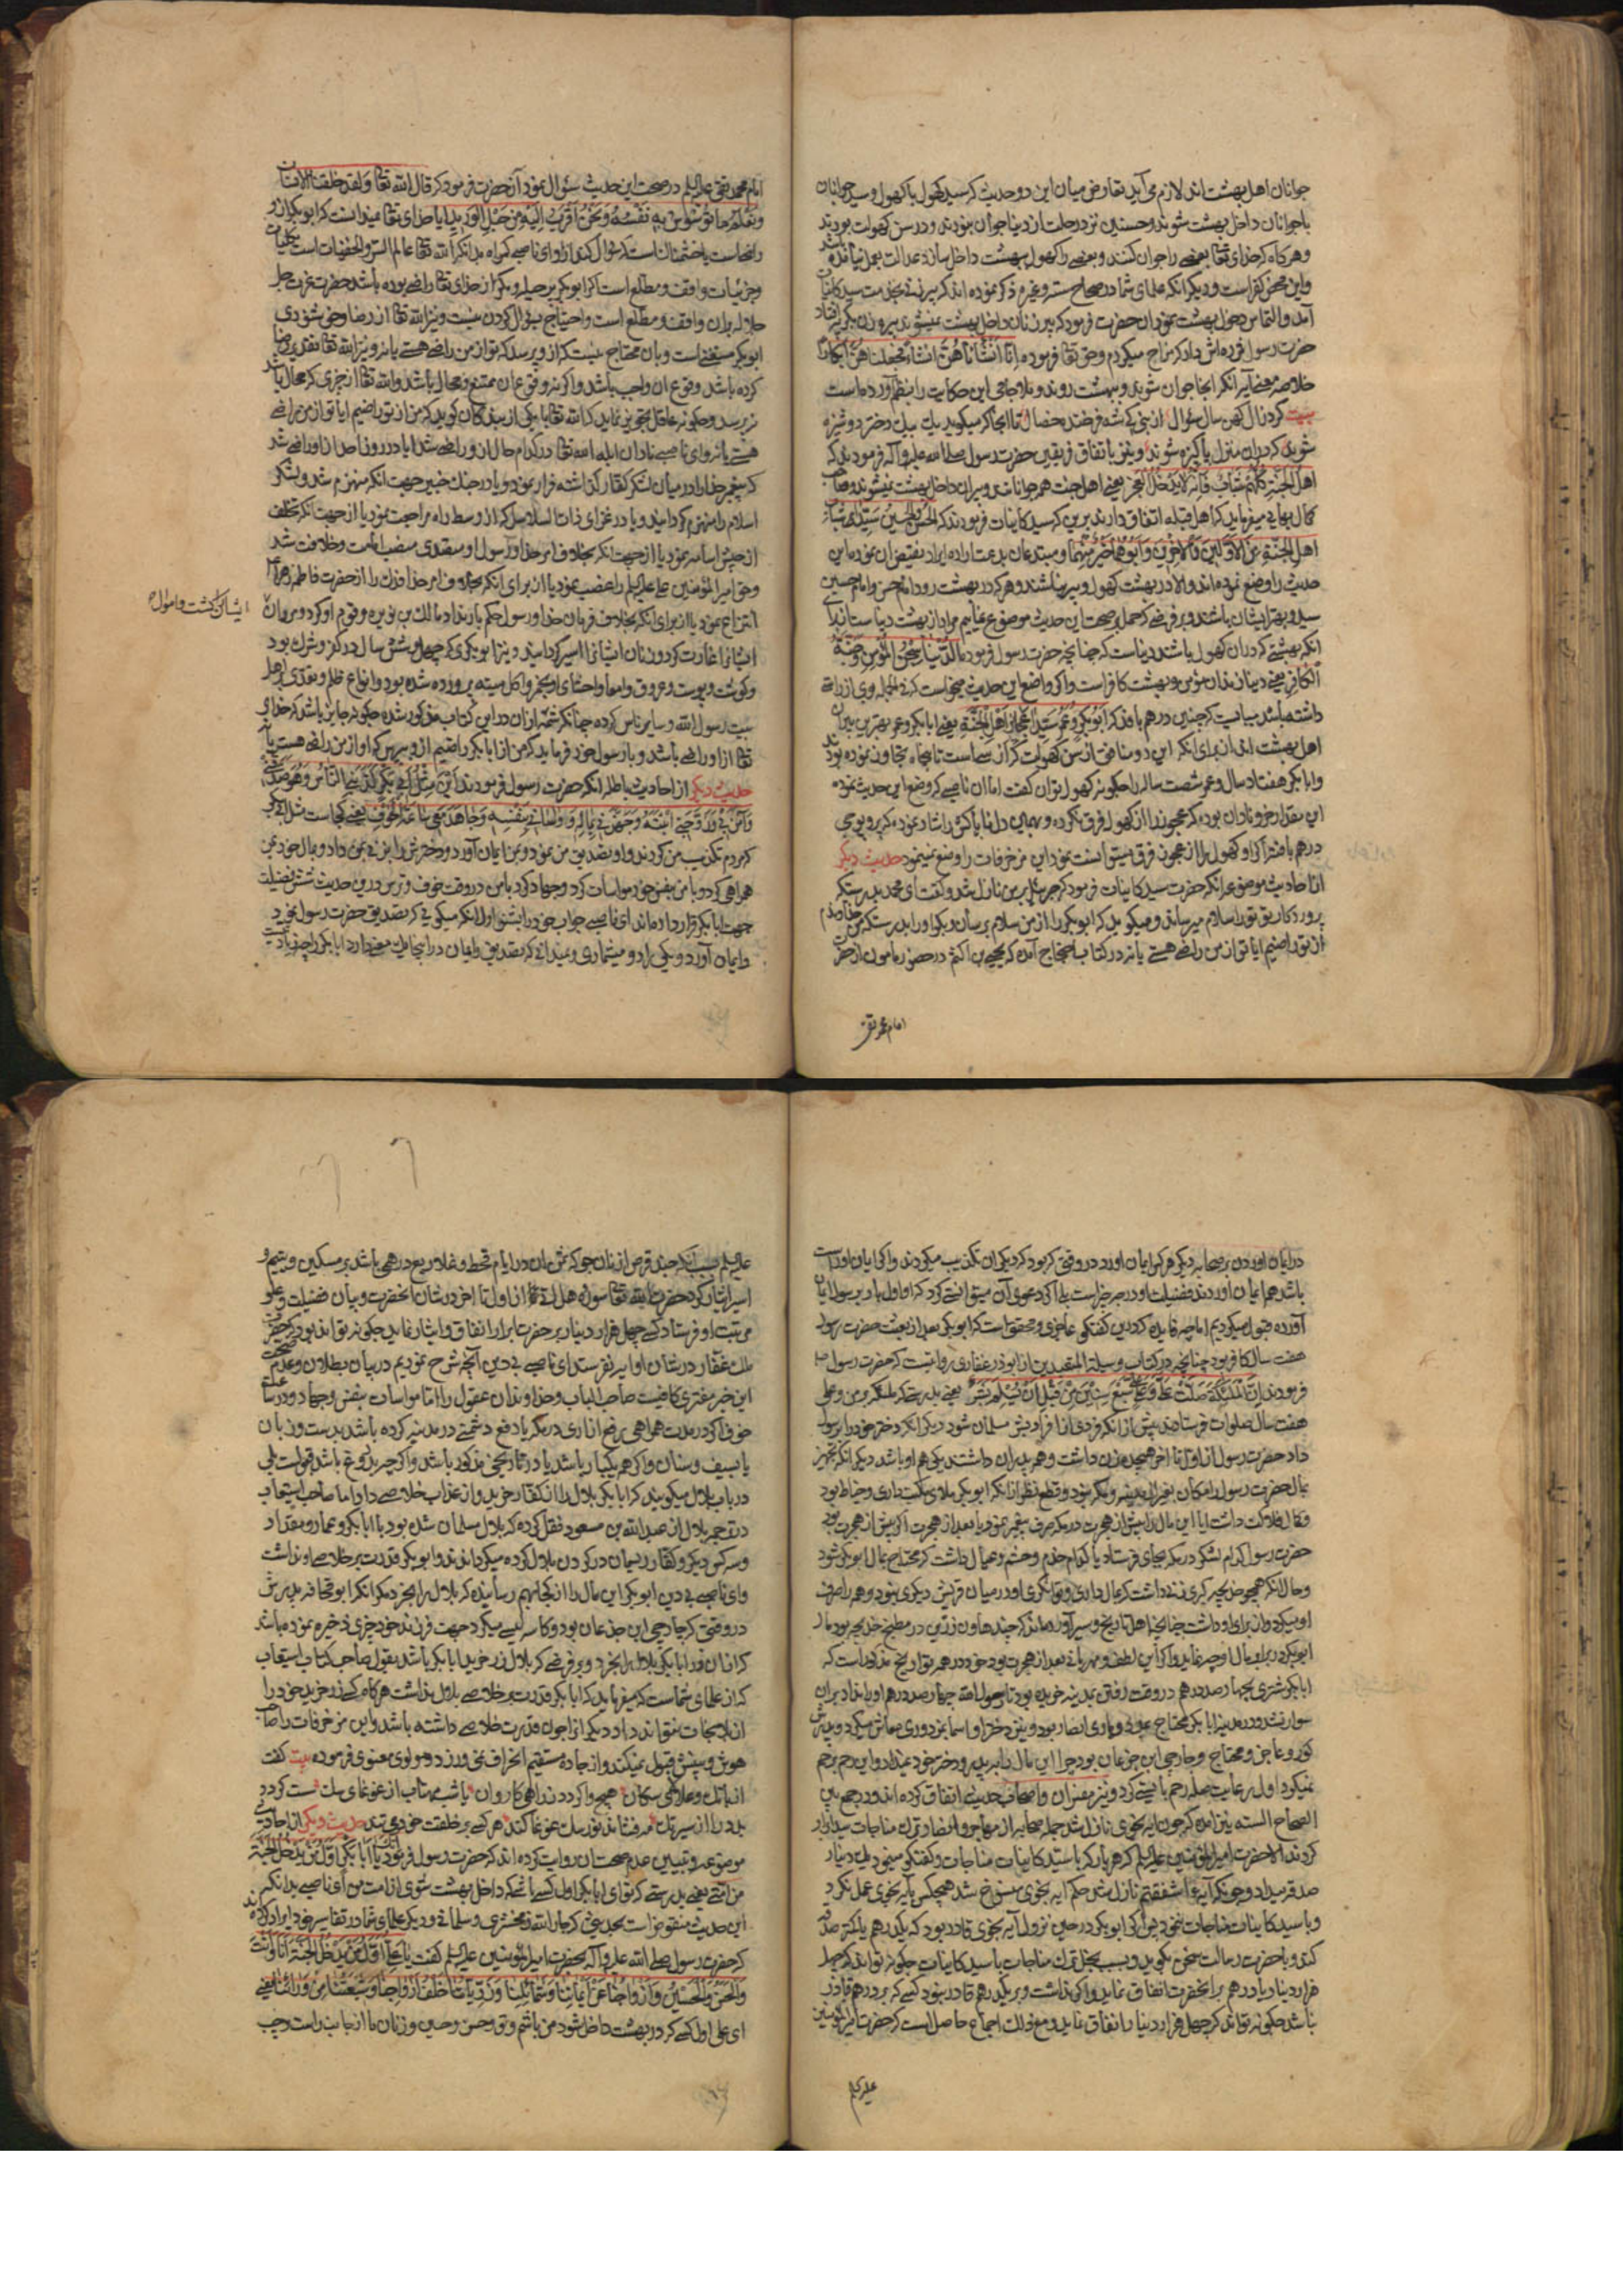 جوانان اهل بهشت اند لازم می آید تعارض میان این دو حدیث که سید کهول با کهول و سید جوانان
با جوانان داخل بهشت شوند و حسنین نزد رحلت از دنیا جوان نبودند و در سن کهولت بودند
و هرگاه که خدای تعالی بعضی را جوان کنند و بعضی را کهول ببهشت داخل سازد عدالت بعمل نیامده باشد
و این محض کفر است و دیگر آنکه علمای شما در صحاح سته و غیره ذکر نموده اند که پیر زنی بخدمت سید کاینات
آمد و التماس دخول بهشت نمود آن حضرت فرمود که پیر زنان داخل بهشت نمیشوند پیره زن بگریه افتاد
حضرت رسول فرمود ه اش داد که مزاح میکردم و حق تعالی فرموده إِنَّا أَنْشَأْنَاهُنَّ إِنْشَاءً فَجَعَلْنَاهُنَّ أَبْكَارًا
خلاصه معنی آیه آنکه آنجا جوان شوند و ببهشت روند و ملا جامی این حکایت را بنظم آورده است
بیت کرد زال کهن سال سؤال
شوند که در آن منزل پاکیزه شوند و نیز باتفاق فریقین حضرت رسول صلی الله علیه و آله فرمودند که
اهل الجنة كلهم شباب فانه لا يدخل العجز یعنی اهل جنت همه جوانانند و پیران داخل بهشت نمیشوند و صاحب
کمال بهایی میفرماید که اهل قبله اتفاق دارند برین که سید کاینات فرمودند که الحسن والحسين سيدا شباب
اهل الجنة من الاولين والاخرين وابوهما خير منهما و مبتدعان بدعت اراده ایراد نقیض آن نموده این
حدیث را وضع نموده اند والا در بهشت کهول و پیر نباشند و هر که در بهشت رود امام حسن و امام حسین
سید و بهتر ایشان باشند و بر فرضی که حمل بر صحت این حدیث موضوع نماییم مراد از بهشت دنیاست زیرا
آنکه بهشتی که در آن کهول باشد دنیاست که چنانچه حضرت رسول فرمود ما الدنيا سجن المؤمن وجنة
الكافر یعنی دنیا زندان مؤمن و بهشت کافر است و اگر واضع این حدیث میخواست که فی الجمله وی از راستی
داشته باشد میبایست که چنین در هم بافد که ابوبكر وعمر سيدا عجايز اهل الجنة یعنی ابابکر و عمر بهترین پیران
اهل بهشت اند از برای آنکه این دو منافق از سن کهولت که از سی است تا پنجاه تجاوز نموده بودند
و ابابکر هفتاد سال و عمر شصت ساله را چگونه کهول توان گفت اما آن ناصبی که وضع این حدیث نموده
این مقدار خر و نادان بوده که عجوز را از کهول فرق نکرده و بهمان دل ناپاکش را شاد نموده که پر و پوچی
درهم بافد اگر او کهول را از عجوز فرق میتوانست نمود این مزخرفات را وضع نمینمود حدیث دیگر
از احادیث موضوعه آنکه حضرت سید کاینات فرمود که جبرئیل بر من نازل شد و گفت ای محمد بدرستیکه
پروردگار تو تو را سلام میرساند و میگوید که ابوبکر را از من سلام برسان و بگو او را بدرستیکه من خداوندم
از تو راضیم آیا تو از من راضی هستی یا نه در کتاب احتجاج آمده که یحیی بن اکثم در حضور مأمون از حضرت
امام محمد تقی
امام محمد تقی علیه السلام در صحت این حدیث سؤال نمود آن حضرت فرمود که قال الله تعالی ولقد خلقنا الانسان
ونعلم ما توسوس به نفسه ونحن اقرب اليه من حبل الوريد آیا خدای تعالی نمیدانست که ابوبکر از او
راضی است یا خشمناک است که سؤال کند از او ای ناصبی گمراه بدانکه الله تعالی عالم السر والخفیات است بکلیات
و جزئیات واقف و مطلع است که ابوبکر پر حیله و مکر از خدای تعالی راضی بوده باشد حضرت عزت جل
جلاله بر آن واقف و مطلع است و احتیاج بسؤال کردن نیست و نیز الله تعالی از رضا و خوشنودی
ابوبکر مستغنی است و بآن محتاج نیست که از او پرسد که تو از من راضی هستی یا نه و نیز الله تعالی تقدیر رضا
کرده باشد وقوع آن واجب باشد و اگر نه وقوع آن ممتنع و محال باشد و الله تعالی از چیزی که محال باشد
نپرسد و چگونه عاقل تجویز نماید که الله تعالی با یکی از بندگان گوید که من از تو راضیم آیا تو از من راضی
هستی یا نه و ای ناصبی نادان ابله الله تعالی در کدام حال از او راضی شد آیا در روز احد از او راضی شد
که پیغمبر خدا را در میان لشکر کفار گذاشته فرار نمود و یا در جنگ خیبر جهت آنکه منهزم شد و لشکر
اسلام را منهزم گردانید و یا در غزای ذات السلاسل که از وسط راه مراجعت نمود یا از جهت آنکه تخلف
از جیش اسامه نمود یا از جهت آنکه بخلاف امر خدا و رسول او متصدی منصب امامت و خلافت شد
و حق امیر المؤمنین علی علیه السلام را غصب نمود یا از برای آنکه بخلاف امر خدا فدک را از حضرت فاطمه زهرا
انتزاع نمود یا از برای آنکه بخلاف فرمان خدا و رسول حکم بارتداد مالک بن نویره و قوم او کرد و مردان
ایشان کشت و اموال
ایشان را غارت کرد و زنان ایشان را اسیر گردانید و نیز ابوبکری که چهل و شش سال در کفر و شرک بود
و گوشت و پوست و عروق و امعا و احشای او بخمر و اکل میته پرورده شده بود و انواع ظلم و تعدی با اهل
بیت رسول الله و سایر ناس کرده چنانکه شمه از آن در این کتاب مذکور شده چگونه جایز باشد که خدای
تعالی از او راضی باشد و با رسول خود فرماید که من از ابابکر راضیم از او بپرس که او از من راضی هست یا نه
حدیث دیگر از احادیث باطل آنکه حضرت رسول فرمودند این مثل ابی بکر کذبنی الناس وهو صدقنی
وآمن بی وزوجنی ابنته وجهزنی بماله وواسانی بنفسه وجاهد معی ساعة الخوف یعنی کجاست مثل ابی بکر
که مردم تکذیب من کردند و او تصدیق من نمود و بمن ایمان آورد و دخترش را بزنی بمن داد و بمال خود بمن
همراهی کرد و با من بنفس خود مواسات کرد و جهاد کرد با من در وقت خوف و ترس و درین حدیث شش فضیلت
جهت ابابکر قرار داده اند ای ناصبی جواب خود را بشنو اول آنکه میگویی که تصدیق حضرت رسول نمود
و ایمان آورد و یکی را دو میشماری و نمیدانی که تصدیق و ایمان در اینجا یک معنی دارد
در ایمان آوردن بر صحابه دیگر هر که ایمان آورد در وقتی که بود که دیگران تکذیب میکردند و اگر ایمان او راست
باشد همه ایمان آوردند فضیلت او در چه چیز است بلی اگر دعوی آن میتوانستی کرد که او اول بار بر رسول ایمان
آورده قبول میکردیم اما چه فایده که درین گفتگو عاجزی و محقق است که ابوبکر بعد از بعثت حضرت رسول
هفت سال کافر بود چنانچه در کتاب وسیلة المتعبدین از ابوذر غفاری روایتست که حضرت رسول
فرمودند ان الملائكة صلت علي وعلى علي سبع سنين من قبل ان يسلم بشر یعنی بدرستیکه ملائکه بر من و علی
هفت سال صلوات فرستادند پیش از آنکه فردی از افراد بشر مسلمان شود دیگر آنکه دختر خود را برسول
داد حضرت رسول از اول تا آخر هیجده زن داشت و همه پدران داشتند یکی هم او باشد دیگر آنکه تجهیز
بمال حضرت رسول را
حضرت رسول کدام لشکر در مکه بجای فرستاد یا کدام خدم و حشم و عیال داشت که محتاج بمال ابوبکر شود
و حال آنکه همچو خدیجه کبری زنی داشت که بمال داری و توانگری او در میان قریش دیگری نبود و همه را صرف
او میکرد و از برای او داشت چنانچه اهل تاریخ و سیر آورده اند که چند هاون زرین در مطبخ خدیجه بود مال
ابوبکر در برابر مال او چه نماید و اگر این لطف و مهربانی بعد از هجرت بود خود در همه تواریخ مذکور است که
ابابکر شتری بچهار صد درهم در وقت رفتن بمدینه خریده بود تا رسول الله چهار صد درهم او را نداد بر آن
سوار نشد و در مدینه ابابکر محتاج بمعونت و یاری انصار بود و نیز دختر او اسما بمزدوری معاش میکرد و پدرش
کور و عاجز و محتاج و جارچی ابن جدعان بود چرا این مال را بر پدر و دختر خود نمیداد و این رحم بر رحم
نمیکرد اول رعایت صله رحم بایستی کرد و نیز مفسران و اصحاب حدیث اتفاق کرده اند و در جمع بین
الصحاح السته نیز آمده که چون آیه نجوی نازل شد جمله صحابه از مهاجر و انصار ترک مناجات سید ابرار
کردند الا حضرت امیر المؤمنین علیه السلام که هر بار که با سید کاینات مناجات و گفتگو مینمود یک دینار
صدقه میداد و چونکه آیه ءاشفقتم نازل شد حکم آیه نجوی منسوخ شد هیچکس بآیه نجوی عمل نکرد
و با سید کاینات مناجات ننمود پس اگر ابوبکر در حین نزول آیه نجوی قادر بود که یکدرهم یا کمتر صدقه
کند و با حضرت رسالت سخن بگوید و بسبب بخل ترک مناجات با سید کاینات چگونه تواند که چهل
هزار دینار یا درهم بر آنحضرت انفاق نماید و اگر نداشت و بر یکدرهم قادر نبود کسی که بر درهم قادر
نباشد چگونه تواند که چهل هزار دینار انفاق نماید و مع ذلک اجماع حاصل است که حضرت امیر المؤمنین
علیه السلام
علیه السلام بسبب آنکه چند قرص از نان جو که ثمن آن در ایام قحط و غلا ربع درهمی باشد بر مسکین و یتیم و
اسیر ایثار کرد حضرت الله تعالی سوره هل اتی را از اول تا آخر در شان آنحضرت و بیان فضیلت و علو
مرتبت او فرستاد کسی چهل هزار دینار بر حضرت ابرار انفاق و ایثار نماید چگونه تواند بود که حضرت
ملک غفار در شان او آیه نفرستد ای ناصبی بی دین آنچه شرح نمودیم در بیان بطلان و عدم صحت
این خبر مفتری کافیست صاحب الباب و خداوندان عقول را اما مواسات بنفس و جهاد در ساعت
خوف اگر در مدت همراهی رفع آزاری در مکه یا دفع دشمنی در مدینه کرده باشد بدست و زبان
یا بسیف و سنان و اگر هم یکبار باشد یا در تاریخی مذکور باشد و اگر چه بدروغ باشد قبولست بلی
در باب بلال میگویند که ابابکر بلال را از کفار خرید و از عذاب خلاصی داد اما صاحب استیعاب
در ترجمه بلال از عبد الله بن مسعود نقل کرده که بلال مسلمان شده بود با ابابکر و عمار و مقداد
و سه کس دیگر و کفار ریسمان در گردن بلال کرده میگرداندند و ابوبکر قدرت بر خلاصی او نداشت
و ای ناصبی بی دین ابوبکر این مال را از کجا بهم رسانیده که بلال را بخرد مگر آنکه ابو قحافه پدرش
در وقتی که جارچی ابن جدعان بود و کاسه لیسی میکرد جهت فرزند خود چیزی ذخیره نموده باشد
که از آن زر ابابکر بلال را بخرد و بر فرضی که بلال زرخرید ابابکر باشد بقول صاحب کتاب استیعاب
که از علمای شماست که میفرماید که ابابکر قدرت بر خلاصی بلال نداشت هرگاه کسی زر خرید خود را
از آن نجات نتواند داد دیگری را چون قدرت خلاصی داشته باشد و این مزخرفات را صاحب
هوش و بینش قبول نمیکند و از جاده مستقیم انحراف نمی ورزد و مولوی معنوی فرموده بیت گفت
از بانگ و علالای سگان هیچ واگردد ز راهی کاروان یا شب مهتاب از غوغای سگ سست گردد
بدر را از سیر تگ مه فشاند نور و سگ عوعو کند هر کسی بر خلقت خود می تند حدیث دیگر از احادیث
موضوعه و تبیین عدم صحت آن روایت کرده اند که حضرت رسول فرمود یا ابابکر انک اول من یدخل الجنة
من امتی یعنی بدرستی که تو ای ابابکر اول کسی باشی که داخل بهشت شوی از امت من ای ناصبی بدانکه
این حدیث منقوض است بحدیثی که جار الله زمخشری و سلمانی و دیگر علمای شما در تفاسیر خود ایراد کرده اند
که حضرت رسول صلی الله علیه و آله بحضرت امیر المؤمنین علیه السلام گفت یا علی اول من یدخل الجنة انا وانت
والحسن والحسين وازواجنا عن ايماننا وشمائلنا وذرياتنا خلف ازواجنا وشيعتنا من ورائنا یعنی
ای علی اول کسی که در بهشت داخل شود من باشم و تو و حسن و حسین و زنان ما از جانب راست و چپ